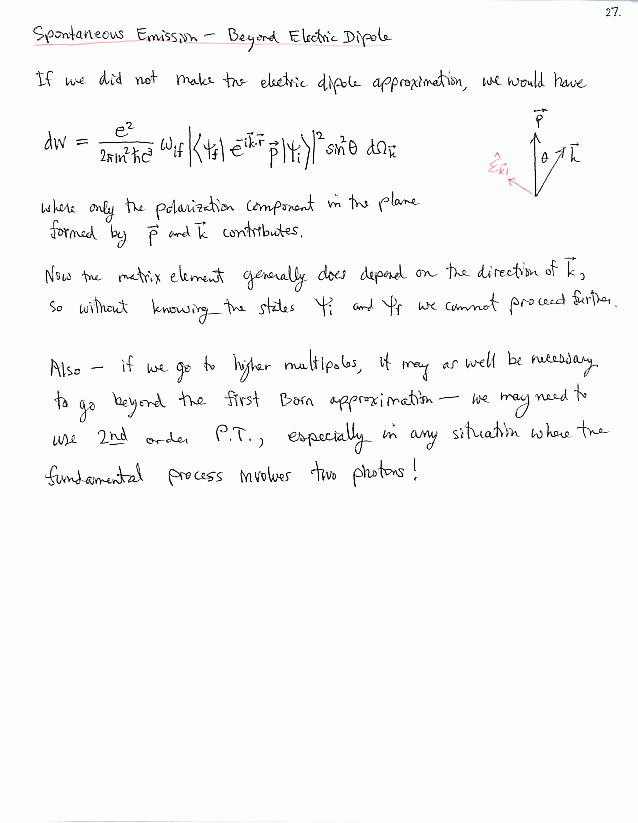 27.
Spontaneous Emission – Beyond Electric Dipole
If we did not make the electric dipole approximation, we would have
dw = e² / 2πm²ħc³ ω_if |⟨ψ_f| e^{-i k⃗·r⃗} p⃗ |ψ_i⟩|² sin²θ dΩ_k⃗
p⃗
θ
k⃗
ε̂_k⃗1
where only the polarization component in the plane
formed by p⃗ and k⃗ contributes.
Now the matrix element generally does depend on the direction of k⃗,
so without knowing the states ψ_i and ψ_f we cannot proceed further.
Also – if we go to higher multipoles, it may as well be necessary
to go beyond the first Born approximation – we may need to
use 2nd order P.T., especially in any situation where the
fundamental process involves two photons!